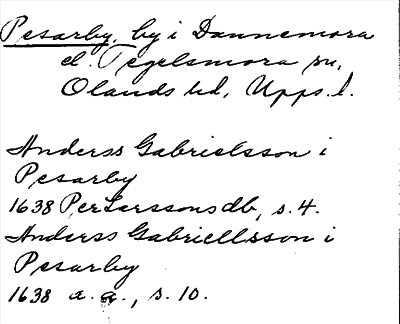 Pesarby, by i Dannemora
el. Tegelsmora sn,
Olands hd, Upps. l.
Anderss Gabrielsson i
Pesarby
1638 Per Larssons db, s. 4.
Anderss Gabriellsson i
Pesarby
1638 a. a., s. 10.